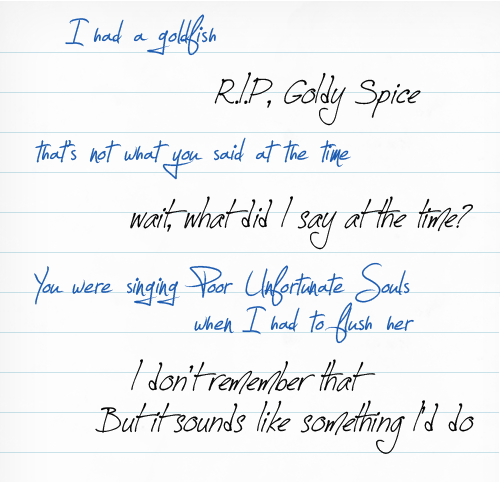 I had a goldfish
R.I.P, Goldy Spice
that's not what you said at the time
wait, what did I say at the time?
You were singing Poor Unfortunate Souls
when I had to flush her
I don't remember that
But it sounds like something I'd do